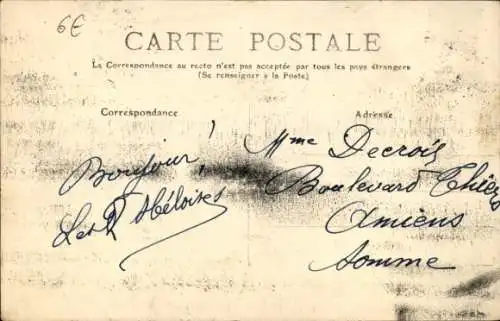 6€
CARTE POSTALE
La Correspondance au recto n'est pas acceptée par tous les pays étrangers
(Se renseigner à la Poste)
Correspondance
Adresse
Bonjour !
Les 2 Héloïses
Mme Decroix
Boulevard Thiers
Amiens
Somme